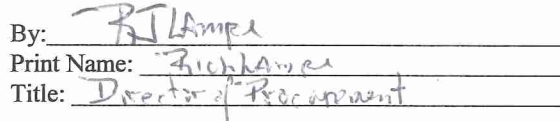 By: RJ Lampe
Print Name: Rich Lampe
Title: Director of Procurement